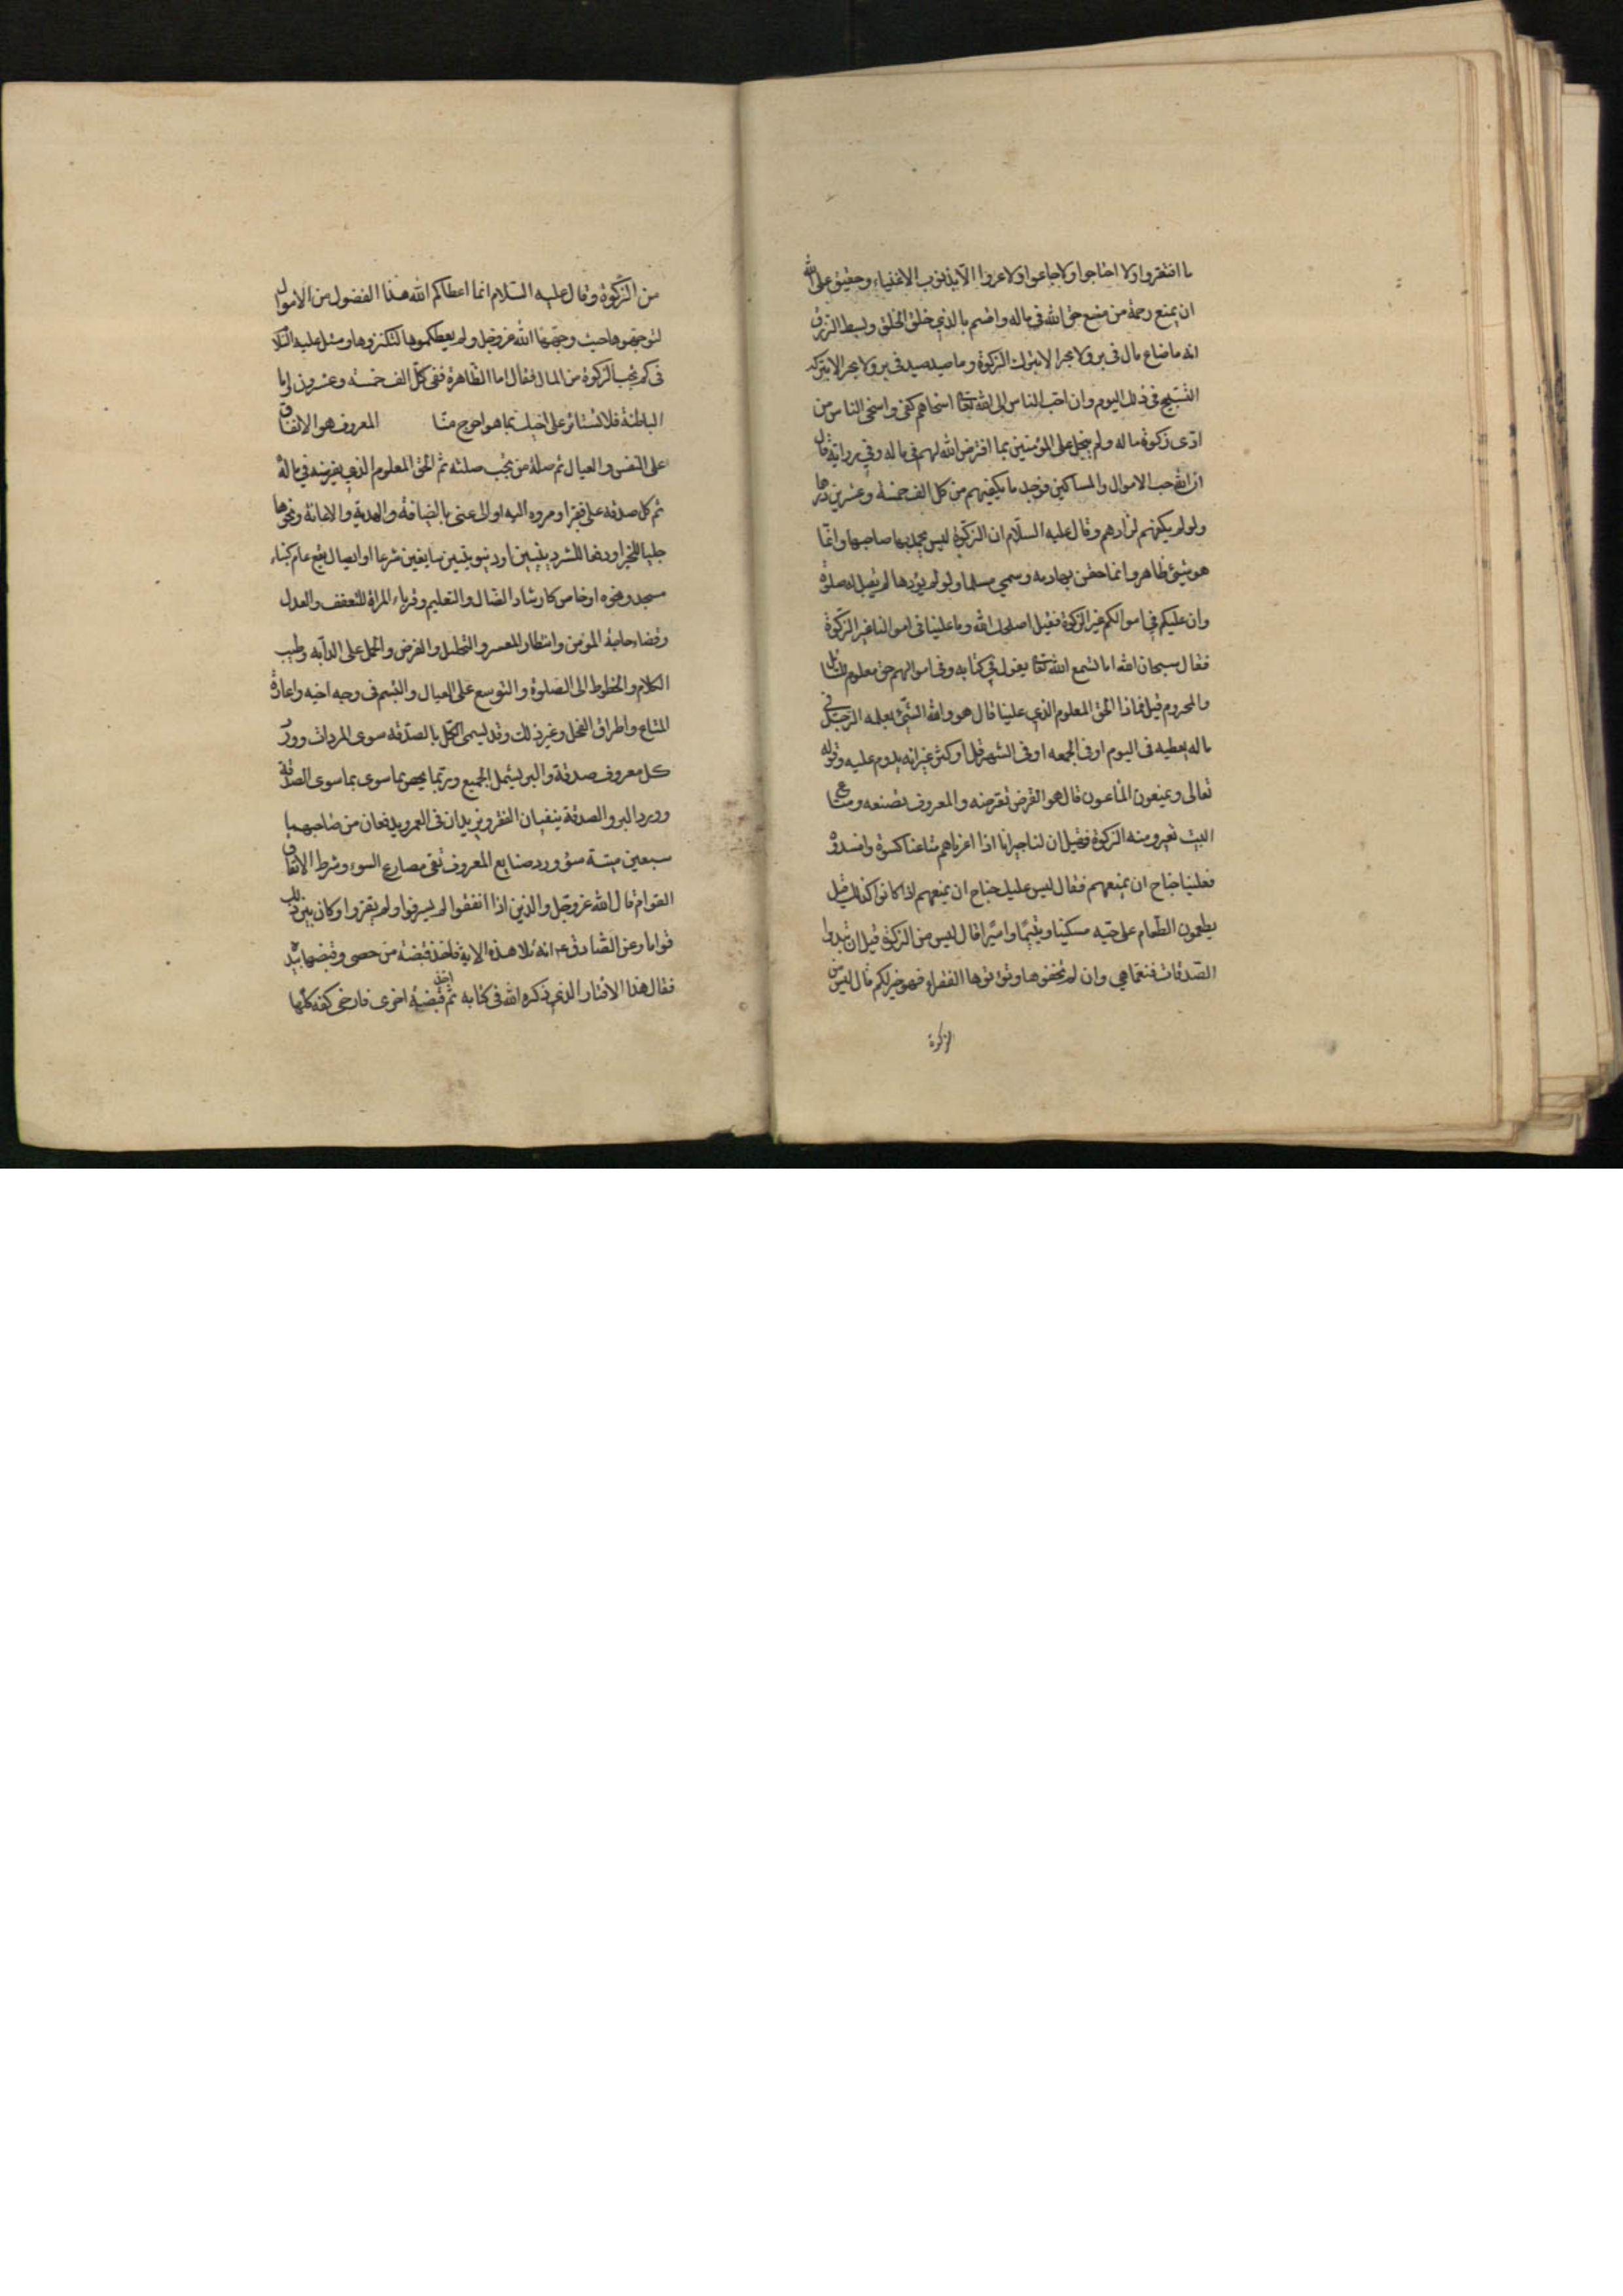 ما افتقروا ولا احتاجوا ولا جاعوا ولا عروا الا بذنوب الاغنياء وحقيق على الله
ان يمنع رحمة من منع حق الله في ماله واقسم بالذي خلق الخلق وبسط الرزق
انه ما ضاع مال في بر ولا بحر الا بترك الزكوة وما صيد صيد في بر ولا بحر الا بتركه
التسبيح في ذلك اليوم وان احب الناس الى الله تعالى اسخاهم كفى واسخى الناس من
ادّى زكوة ماله ولم يبخل على المؤمنين بما افترض الله لهم في ماله وفي رواية قال
ان الله حسب الاموال والمساكين فوجد ما يكفيهم من كل الف خمسة وعشرين درهما
ولو لم يكفهم لزادهم وقال عليه السلام ان الزكوة ليس يحمد بها صاحبها وانما
هو شيئ ظاهر وانما حقن بها دمه وسمي مسلما ولو لم يؤدها لم تقبل له صلوة
وان عليكم في اموالكم غير الزكوة فقيل اصلحك الله وما علينا في اموالنا غير الزكوة
فقال سبحان الله اما تسمع الله تعالى يقول في كتابه وفي اموالهم حق معلوم للسائل
والمحروم قيل فماذا الحق المعلوم الذي علينا قال هو والله الشيئ يعلمه الرجل في
ماله يعطيه في اليوم او في الجمعه او في الشهر قل او كثر غير انه يدوم عليه وقوله
تعالى ويمنعون الماعون قال هو القرض تقرضه والمعروف تصنعه ومتاع
البيت تعيره ومنه الزكوة فقيل ان لنا جيرانا اذا اعرناهم متاعنا كسروه وافسدوه
فعلينا جناح ان نمنعهم فقال ليس عليك جناح ان تمنعهم اذا كانوا كذلك قيل
يطعمون الطعام على حبه مسكينا ويتيما واسيرا قال ليس من الزكوة قيل ان تبدوا
الصدقات فنعما هي وان لم تخفوها وتؤتوها الفقراء فهو خير لكم قال ليس من
الزكوة
من الزكوة وقال عليه السلام انما اعطاكم الله هذا الفضول من الاموال
لتوجهوها حيث وجهها الله عز وجل ولم يعطكموها لتكنزوها وسئل عليه السلا
في كم تجب الزكوة من المال فقال اما الظاهرة ففي كل الف خمسة وعشرون واما
الباطنة فلا تستاثر على اخيك بما هو احوج منا المعروف هو الانفاق
على النفس والعيال ثم صلة من يجب صلته ثم الحق المعلوم الذي يفرضه في ماله
ثم كل صدقه على فقير او مروه اليه اولى عنى بالضيافة والهدية والاعانة ونحوها
جلبا للخير او دفعا للشر دينيين او دنيويين سايغين شرعا او ايصال نفع عام كبناء
مسجد ونحوه او خاص كارشاد الضال والتعليم المراة للتعفف والعدل
وقضاء حاجة المؤمن وانتظار المعسر والتحليل والقرض والحمل على الدابه وطيب
الكلام والخطوط الى الصلوة والتوسع على العيال والتبسم في وجه اخيه واعارة
المتاع واطراق الفحل وغير ذلك وقد ليسمى الكل بالصدقه سوى المردات وورد
كل معروف صدقة والبر يشمل الجميع وربما يخص بما سوى الصدقة
وورد البر والصدقة ينفيان الفقر ويزيدان في العمر ويدفعان من صاحبهما
سبعين ميتة سؤ وورد صنايع المعروف تقى مصارع السوء وشرط الانفاق
القوام قال الله عز وجل والذين اذا انفقوا لم يسرفوا ولم يقتروا وكان بين ذلك
قواما وعن الصادق ع انه تلا هذه الاية فاخذ قبضة من حصى وقبضها بيده
فقال هذا الاقتار الذي ذكره الله في كتابه ثم اخذ قبضة اخرى فارخى كفه كلها